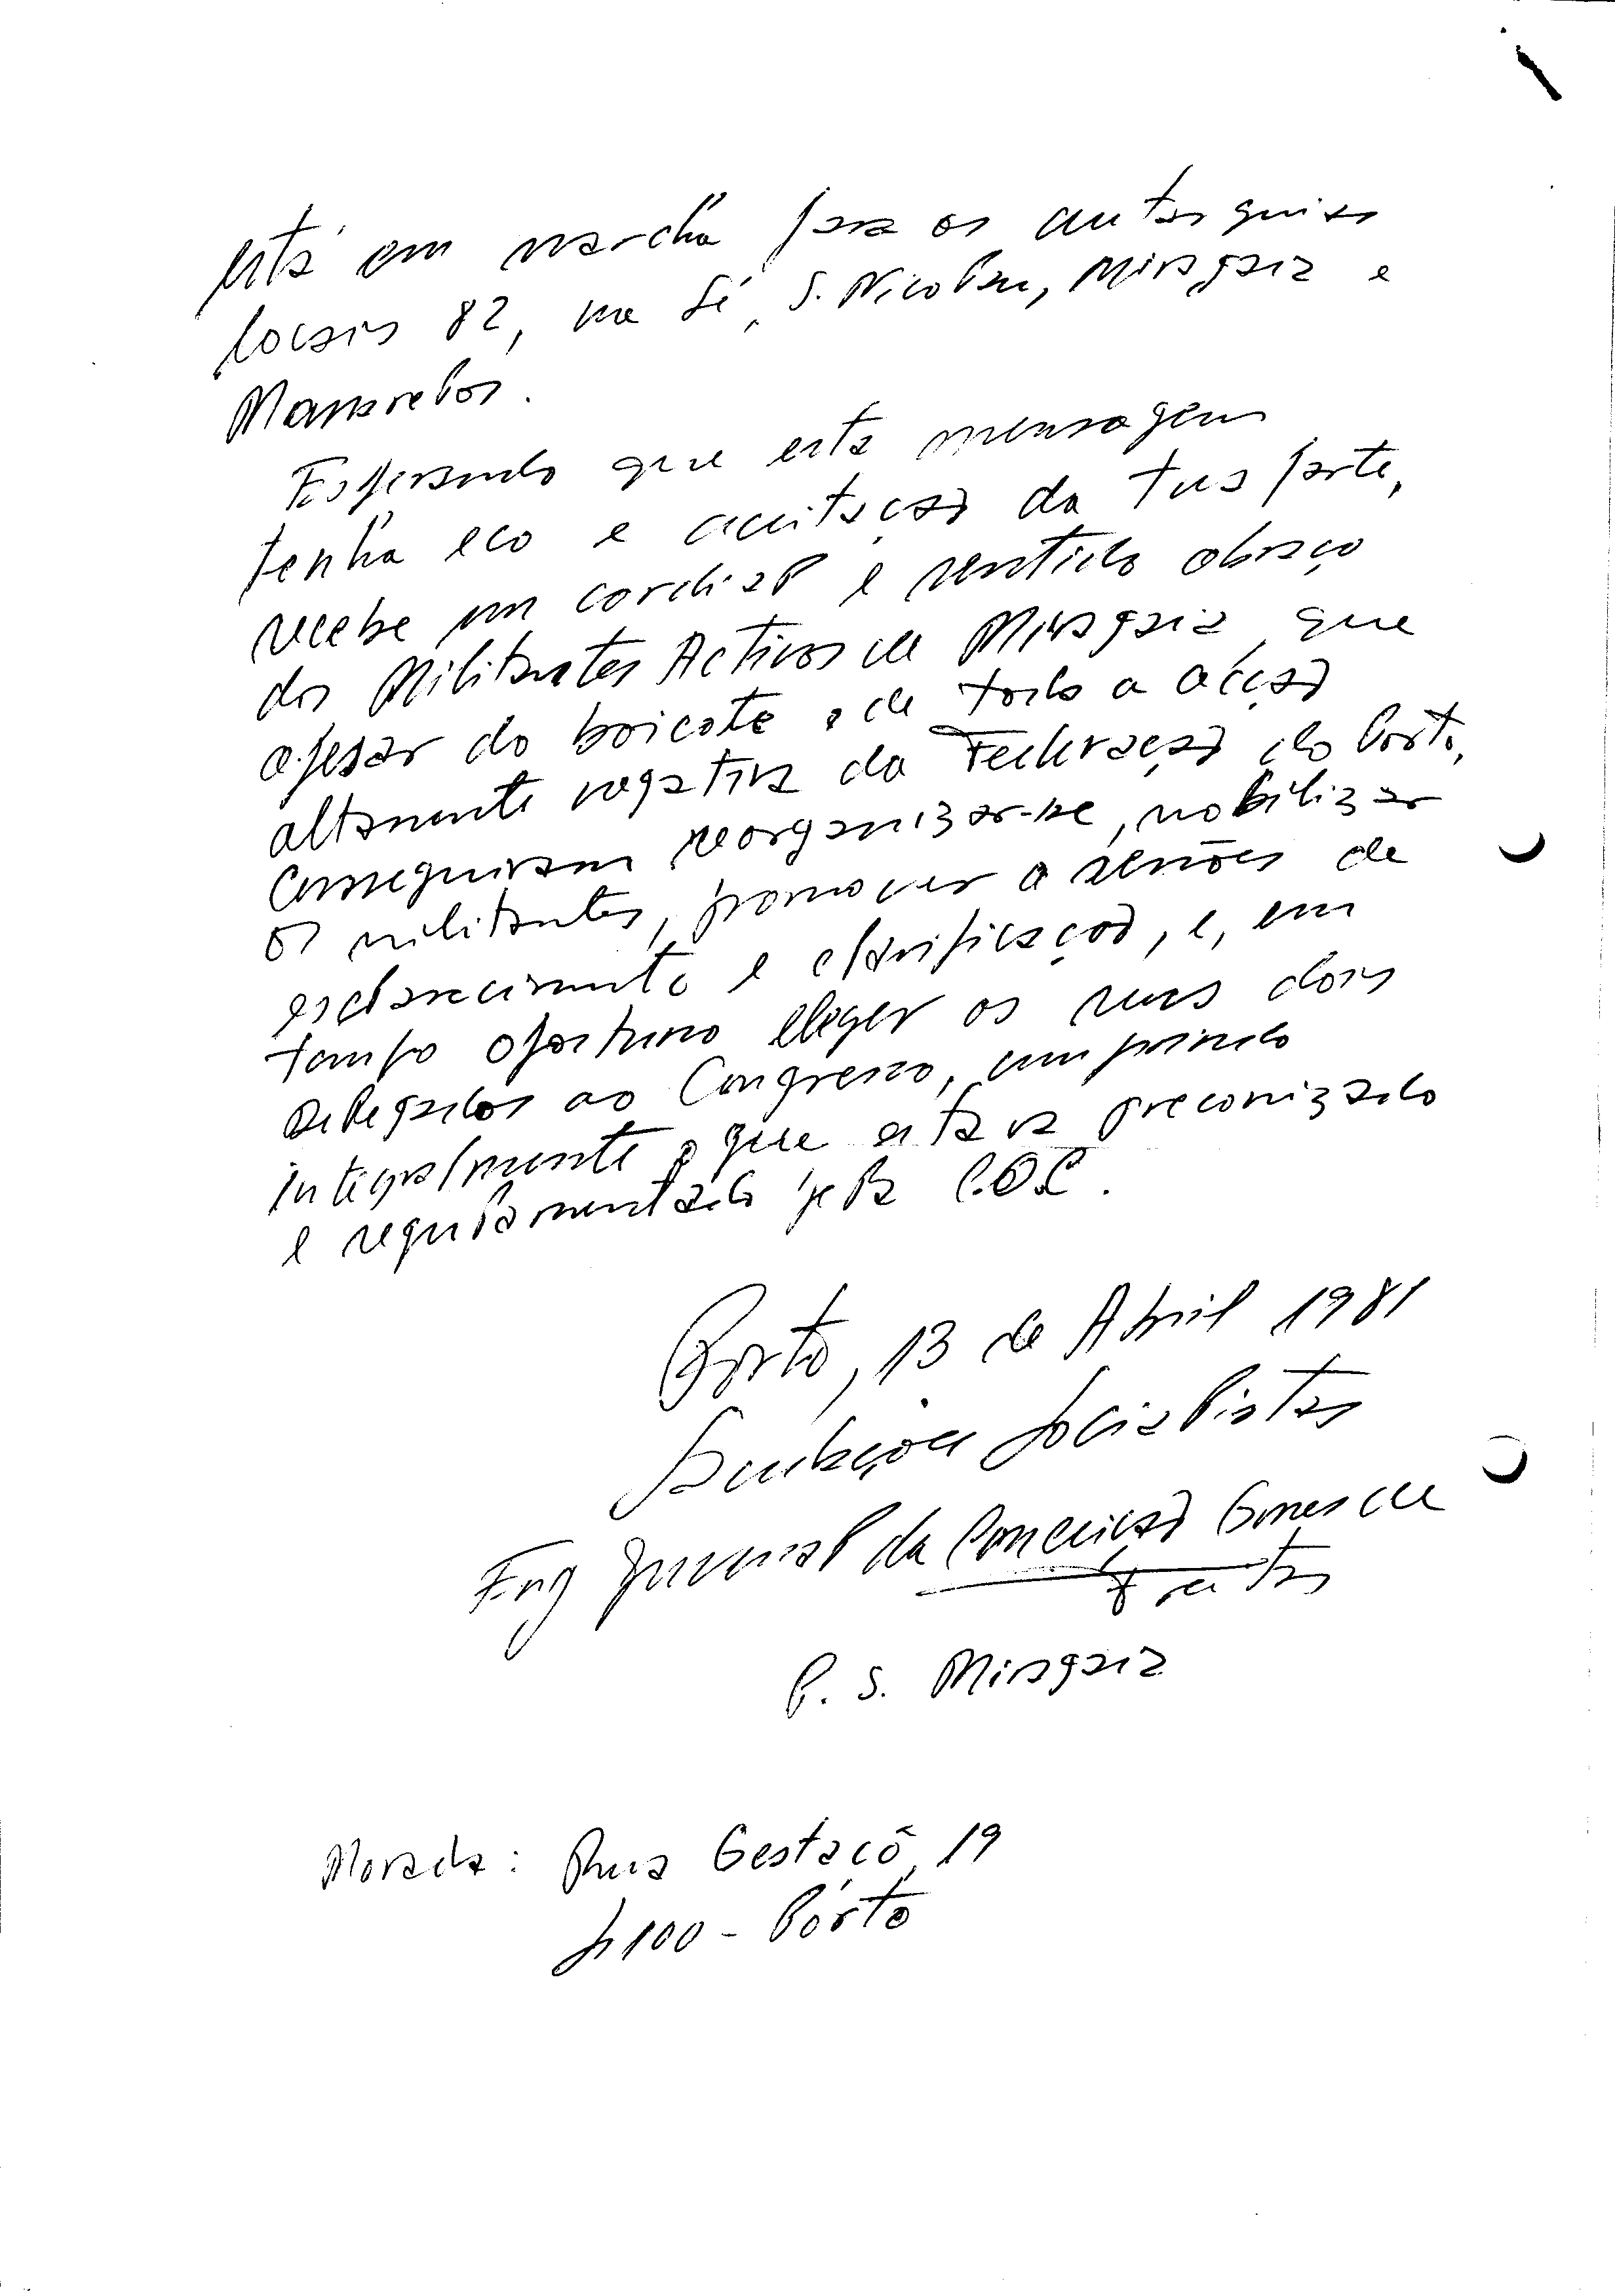 está em marcha para as autarquias
locais 82, na Sé, S. Nicolau, Miragaia e
Massarelos.
Esperando que esta mensagem
tenha eco e aceitação da tua parte,
recebe um cordial e sentido abraço
dos Militantes Activos de Miragaia, que
apesar do boicote e de toda a acção
altamente negativa da Federação do Porto,
conseguiram reorganizar-se, mobilizar
os militantes, promover a sessões de
esclarecimento e clarificação, e, em
tempo oportuno eleger os seus dois
delegados ao Congresso, cumprindo
integralmente o que estava preconizado
e regulamentado pela C.O.C.
Porto, 13 de Abril 1981
Saudações Socialistas
Eng Juvenal da Conceição Gomes de
Freitas
P. S. Miragaia
Morada: Rua Gestaçô, 19
4100 - Porto